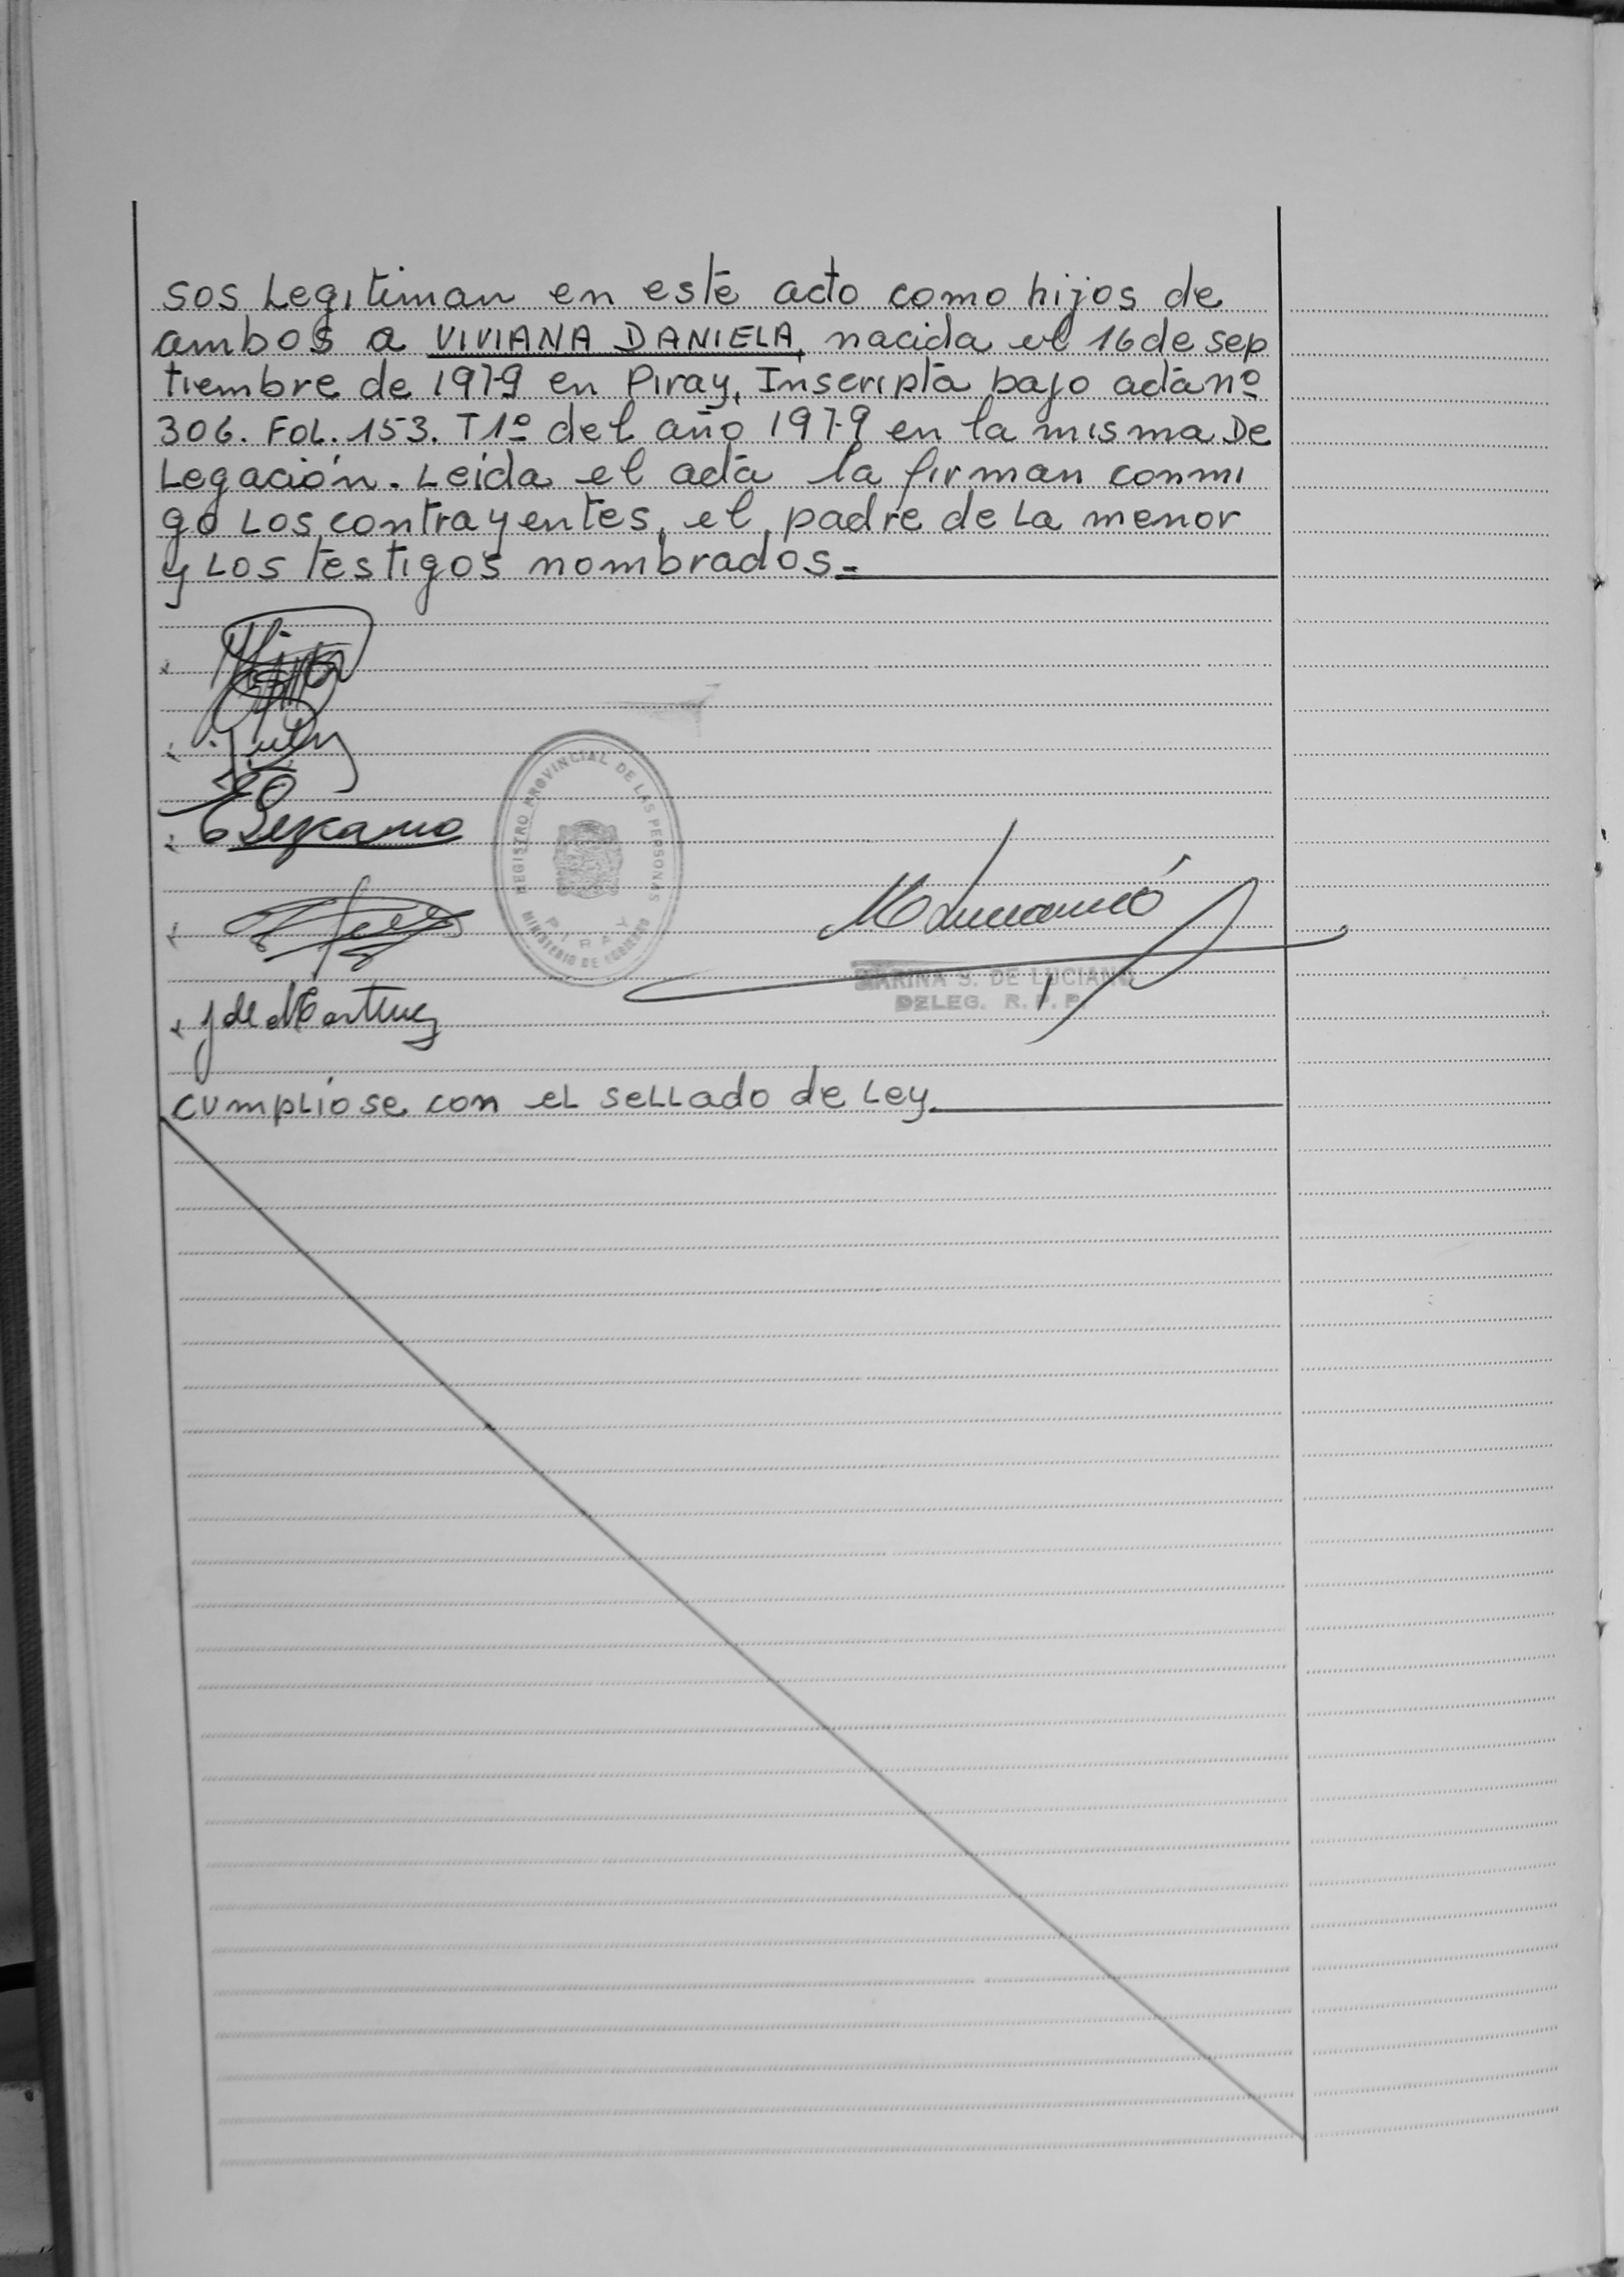 sos Legitiman en este acto como hijos de
ambos a VIVIANA DANIELA, nacida el 16 de sep
tiembre de 1979 en Piray, Inscripta bajo acta nº
306. FOL. 153. T1º del año 1979 en la misma De
Legación. Leída el acta la firman conmi
go Los contrayentes, el padre de La menor
y Los testigos nombrados.=
REGISTRO PROVINCIAL DE LAS PERSONAS
PIRAY
MINISTERIO DE GOBIERNO
MARINA S. DE LUCIANO
DELEG. R. P. P.
J de Martinez
cumplióse con el sellado de Ley.